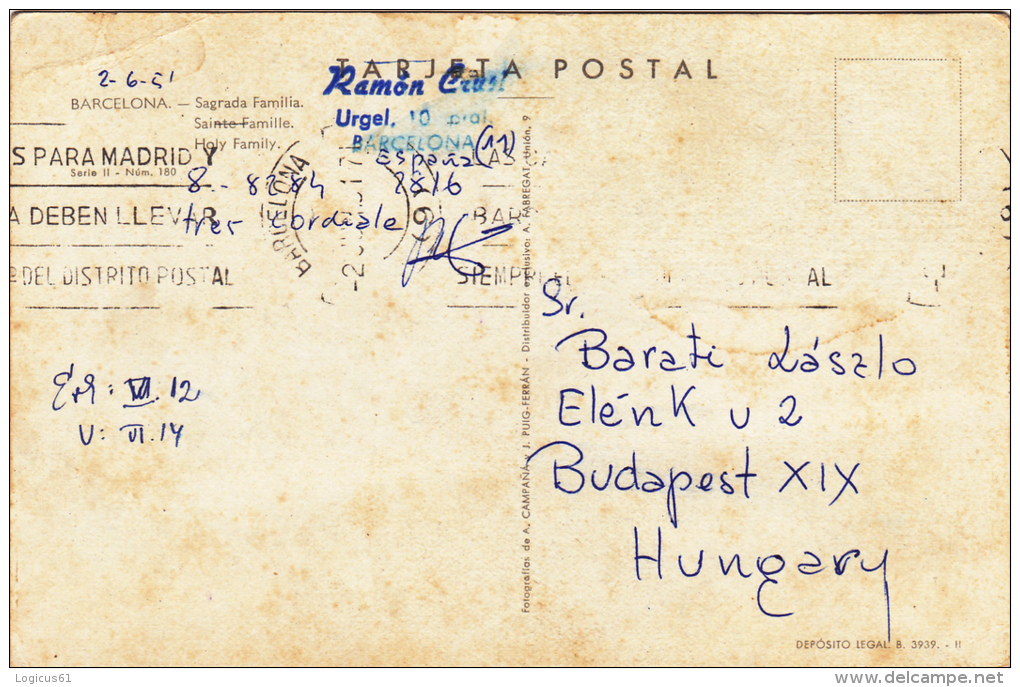 TARJETA POSTAL
2-6-61
BARCELONA. — Sagrada Familia.
Sainte Famille.
Holy Family.
Serie II - Núm. 180
Ramón
Urgel, 10
BARCELONA (11)
España
S PARA MADRID Y
A DEBEN LLEVAR
DEL DISTRITO POSTAL
BARCELONA
SIEMPRE
AL
8.- 8284 2816
tres Cordiale
Ért: VI. 12
V: VI. 14
Sr.
Barati László
Elénk u 2
Budapest XIX
Hungary
Fotografías de A. CAMPAÑÁ y J. PUIG-FERRÁN - Distribuidor exclusivo: A. FABREGAT Unión, 9
DEPÓSITO LEGAL: B. 3939. - II
Logicus61
delcampe.net